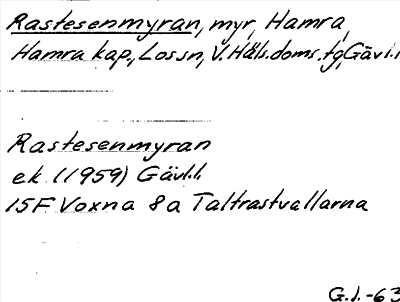 Rastesenmyran, myr, Hamra,
Hamra kap., Lossn, V. Häls. doms. tg, Gävl.l.
Rastesenmyran
ek. (1959) Gävl.l.
15F Voxna 8a Taltrastvallarna
G.I.-63